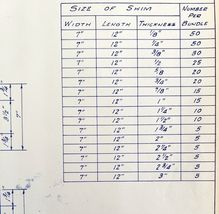 SIZE OF SWIM NUMBER PER BUNDLE
WIDTH LENGTH THICKNESS
7" 12" 1/8" 50
7" 12" 1/4" 50
7" 12" 3/8" 30
7" 12" 1/2" 25
7" 12" 5/8" 20
7" 12" 3/4" 20
7" 12" 7/8" 15
7" 12" 1" 15
7" 12" 1 1/4" 10
7" 12" 1 1/2" 10
7" 12" 1 3/4" 5
7" 12" 2" 5
7" 12" 2 1/4" 5
7" 12" 2 1/2" 5
7" 12" 2 3/4" 5
7" 12" 3" 5
3 1/2"
7"